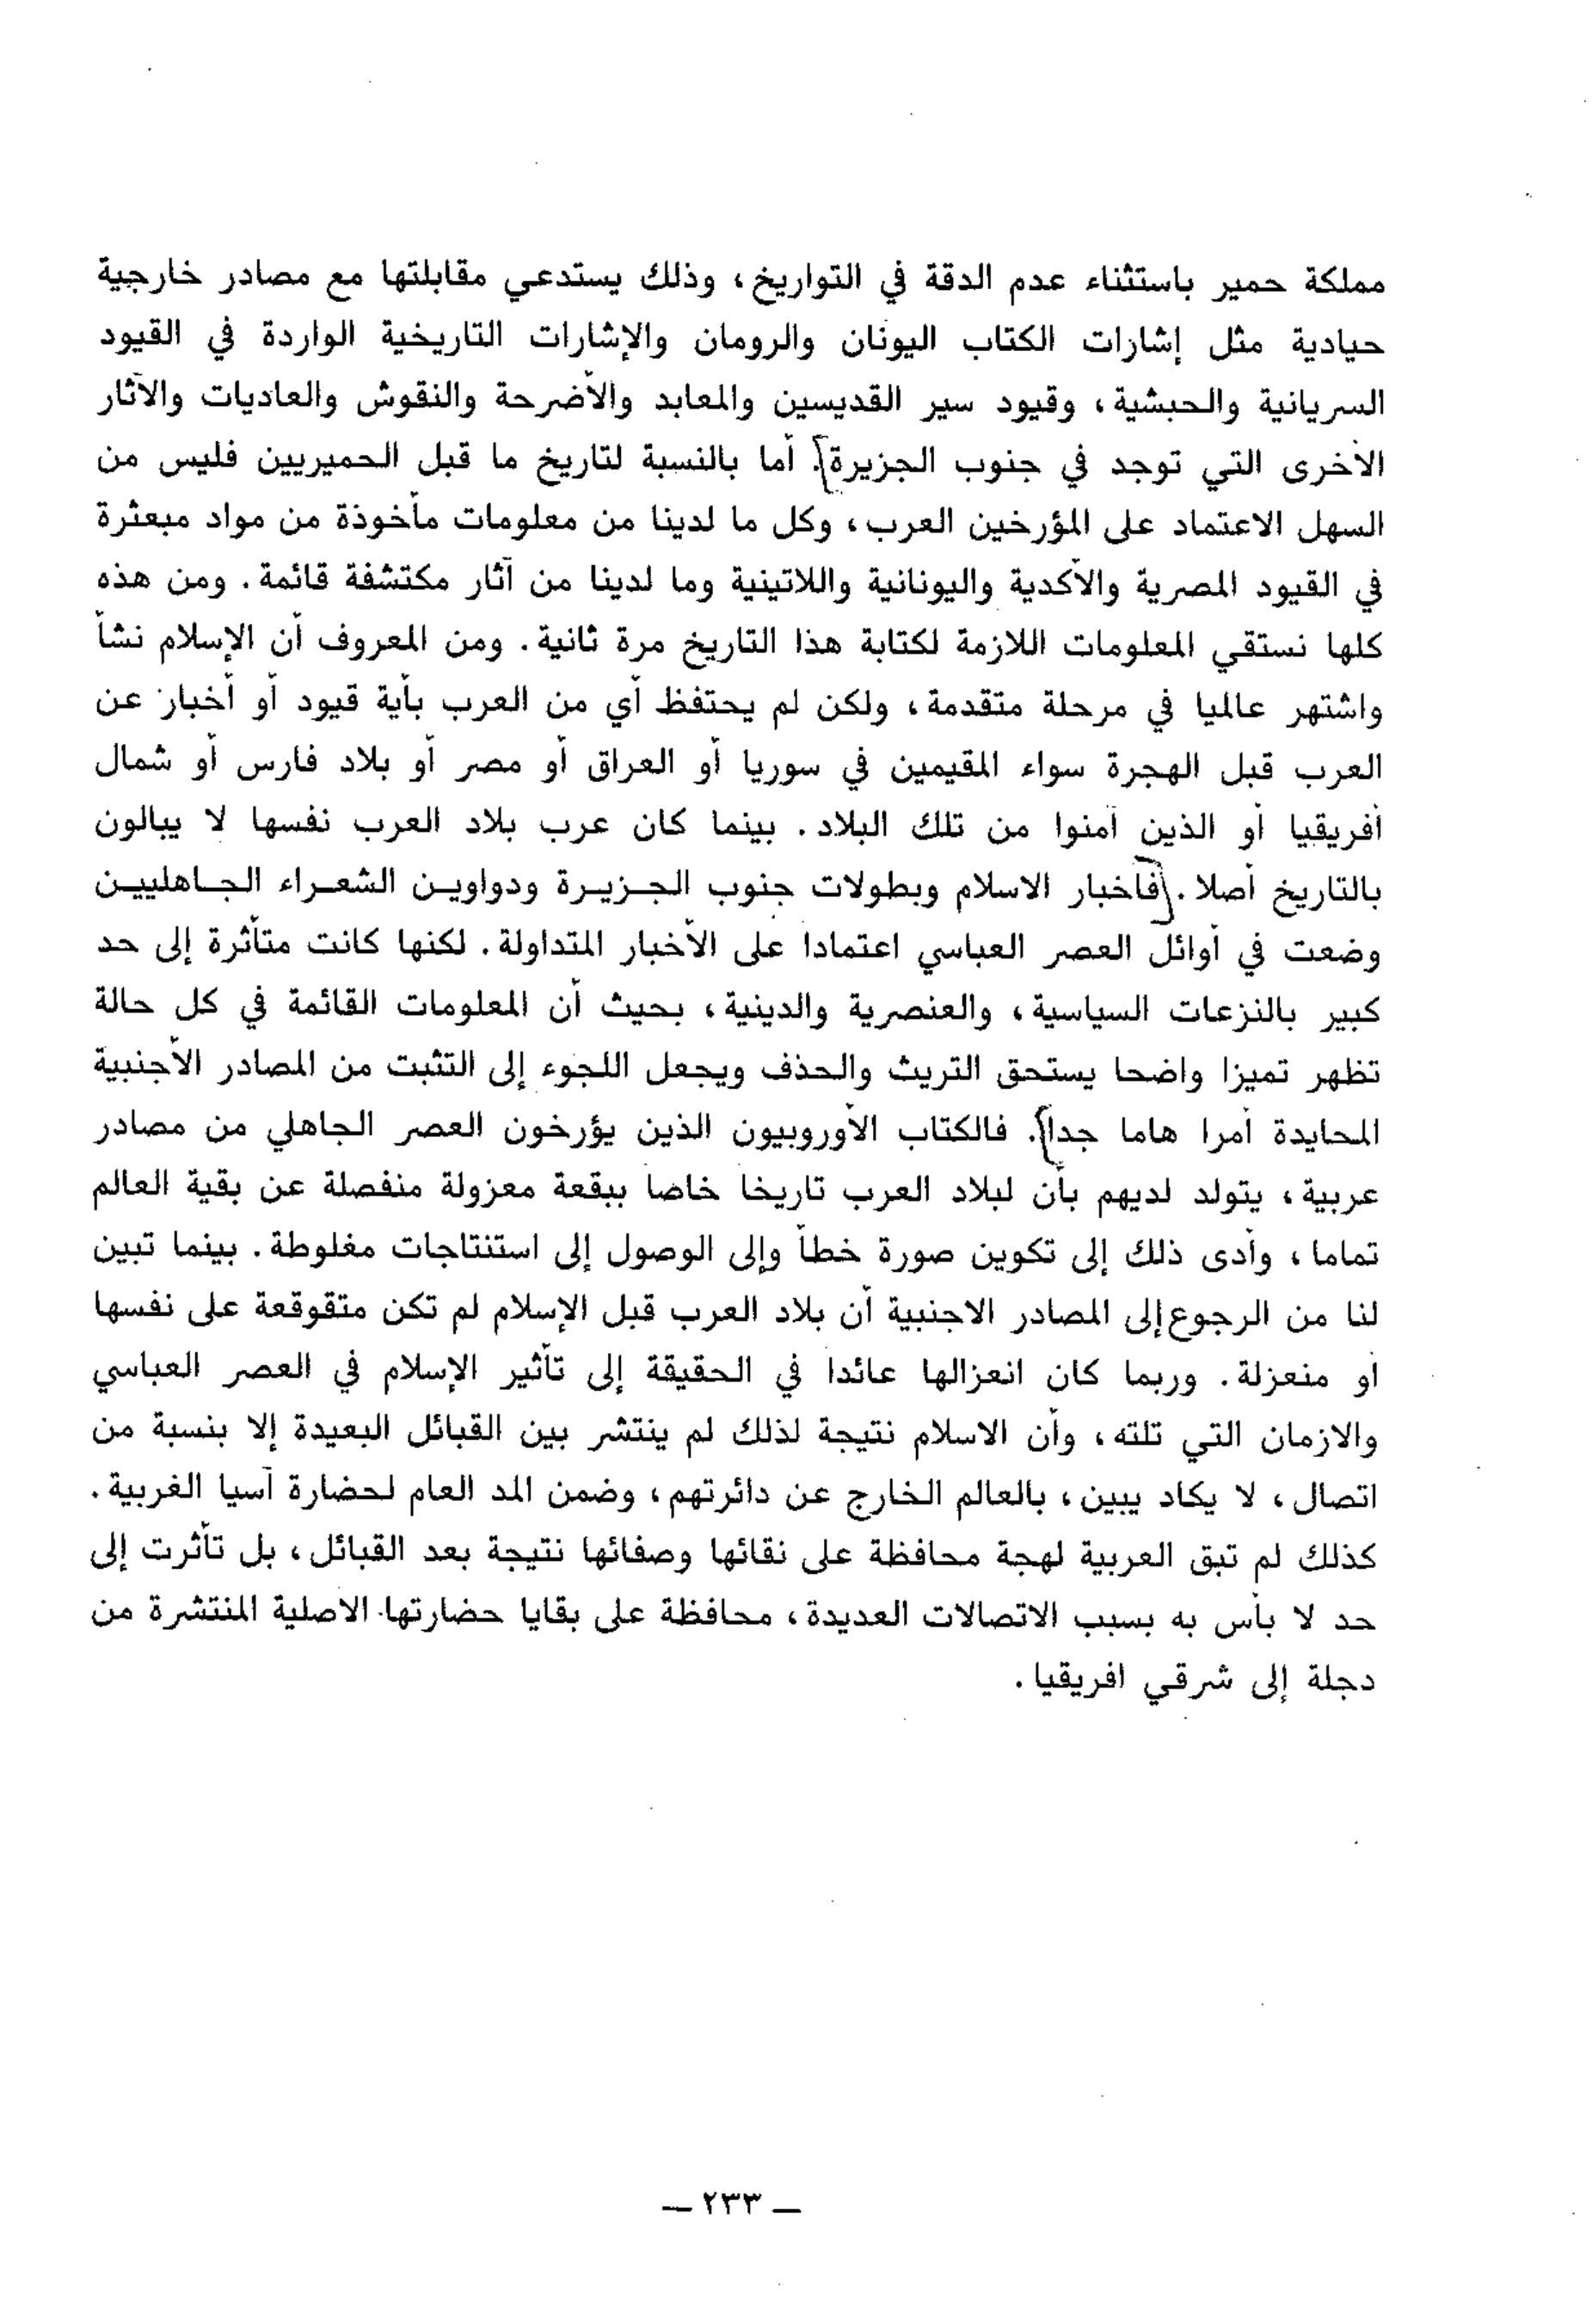 مملكة حمير باستثناء عدم الدقة في التواريخ، وذلك يستدعي مقابلتها مع مصادر خارجية
حيادية مثل إشارات الكتاب اليونان والرومان والإشارات التاريخية الواردة في القيود
السريانية والحبشية، وقيود سير القديسين والمعابد والأضرحة والنقوش والعاديات والآثار
الأخرى التي توجد في جنوب الجزيرة]. أما بالنسبة لتاريخ ما قبل الحميريين فليس من
السهل الاعتماد على المؤرخين العرب، وكل ما لدينا من معلومات مأخوذة من مواد مبعثرة
في القيود المصرية والأكدية واليونانية واللاتينية وما لدينا من آثار مكتشفة قائمة. ومن هذه
كلها نستقي المعلومات اللازمة لكتابة هذا التاريخ مرة ثانية. ومن المعروف أن الإسلام نشأ
واشتهر عالميا في مرحلة متقدمة، ولكن لم يحتفظ أي من العرب بأية قيود أو أخبار عن
العرب قبل الهجرة سواء المقيمين في سوريا أو العراق أو مصر أو بلاد فارس أو شمال
أفريقيا أو الذين آمنوا من تلك البلاد. بينما كان عرب بلاد العرب نفسها لا يبالون
بالتاريخ أصلا. [فأخبار الاسلام وبطولات جنوب الجزيرة ودواوين الشعراء الجاهليين
وضعت في أوائل العصر العباسي اعتمادا على الأخبار المتداولة. لكنها كانت متأثرة إلى حد
كبير بالنزعات السياسية، والعنصرية والدينية، بحيث أن المعلومات القائمة في كل حالة
تظهر تميزا واضحا يستحق التريث والحذف ويجعل اللجوء إلى التثبت من المصادر الأجنبية
المحايدة أمرا هاما جدا]. فالكتاب الأوروبيون الذين يؤرخون العصر الجاهلي من مصادر
عربية، يتولد لديهم بأن لبلاد العرب تاريخا خاصا ببقعة معزولة منفصلة عن بقية العالم
تماما، وأدى ذلك إلى تكوين صورة خطأ وإلى الوصول إلى استنتاجات مغلوطة. بينما تبين
لنا من الرجوع إلى المصادر الاجنبية أن بلاد العرب قبل الإسلام لم تكن متقوقعة على نفسها
او منعزلة. وربما كان انعزالها عائدا في الحقيقة إلى تأثير الإسلام في العصر العباسي
والازمان التي تلته، وأن الاسلام نتيجة لذلك لم ينتشر بين القبائل البعيدة إلا بنسبة من
اتصال، لا يكاد يبين، بالعالم الخارج عن دائرتهم، وضمن المد العام لحضارة آسيا الغربية.
كذلك لم تبق العربية لهجة محافظة على نقائها وصفائها نتيجة بعد القبائل، بل تأثرت إلى
حد لا بأس به بسبب الاتصالات العديدة، محافظة على بقايا حضارتها الاصلية المنتشرة من
دجلة إلى شرقي افريقيا.
— ٢٣٣ —